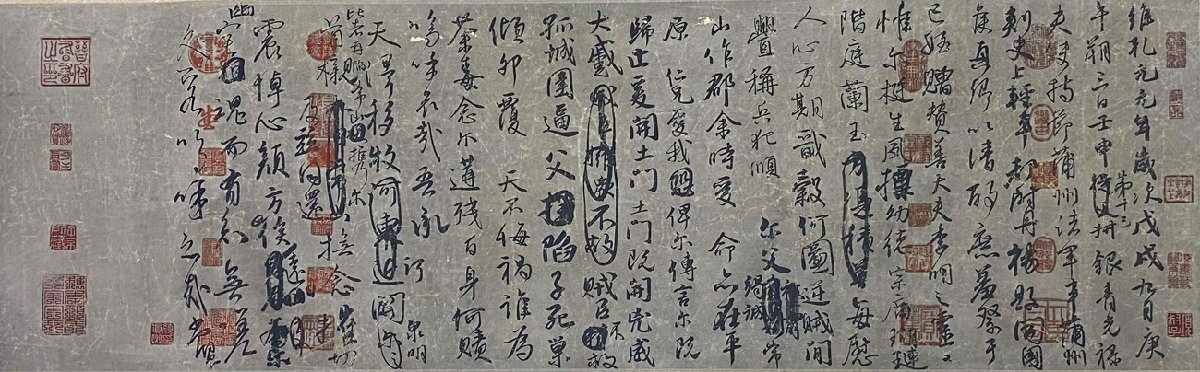 維乾元元年歲次戊戌九月庚
午朔三日壬申第十三叔銀青光祿
夫使持節蒲州諸軍事蒲州
刺史上輕車都尉丹楊縣開國
侯真卿以清酌庶羞祭于
亡姪贈贊善大夫季明之靈曰
惟爾挺生夙標幼德宗廟瑚璉
階庭蘭玉每慰
人心方期戩穀何圖逆賊閒
釁稱兵犯順爾父竭誠常
山作郡余時受命亦在平
原仁兄愛我俾爾傳言爾既
歸止爰開土門土門既開凶威
大蹙賊臣不救
孤城圍逼父陷子死巢
傾卵覆天不悔禍誰為
荼毒念爾遘殘百身何贖
嗚呼哀哉吾承
天澤移牧河關泉明
比者再陷常山攜爾
首櫬及茲同還撫念摧切
震悼心顏方俟遠日
幽宅魂而有知無嗟
久客嗚呼哀哉尚饗